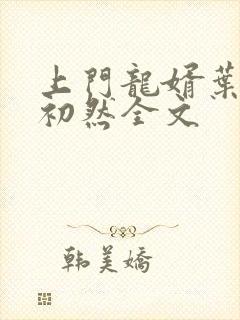 上門龍婿葉
初然全文
韩美嬌